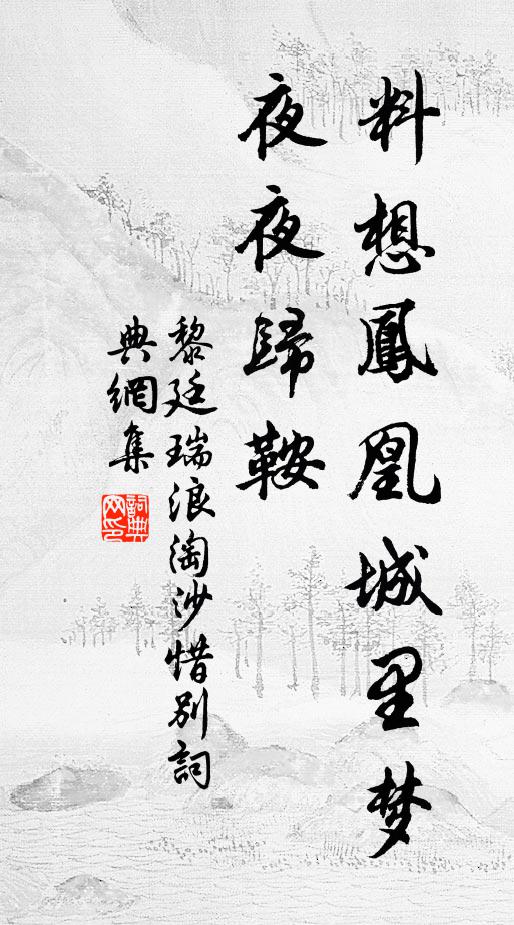 料想鳳凰城里梦
夜夜歸鞍
黎廷瑞浪淘沙惜别詞
典網集
詞典網印